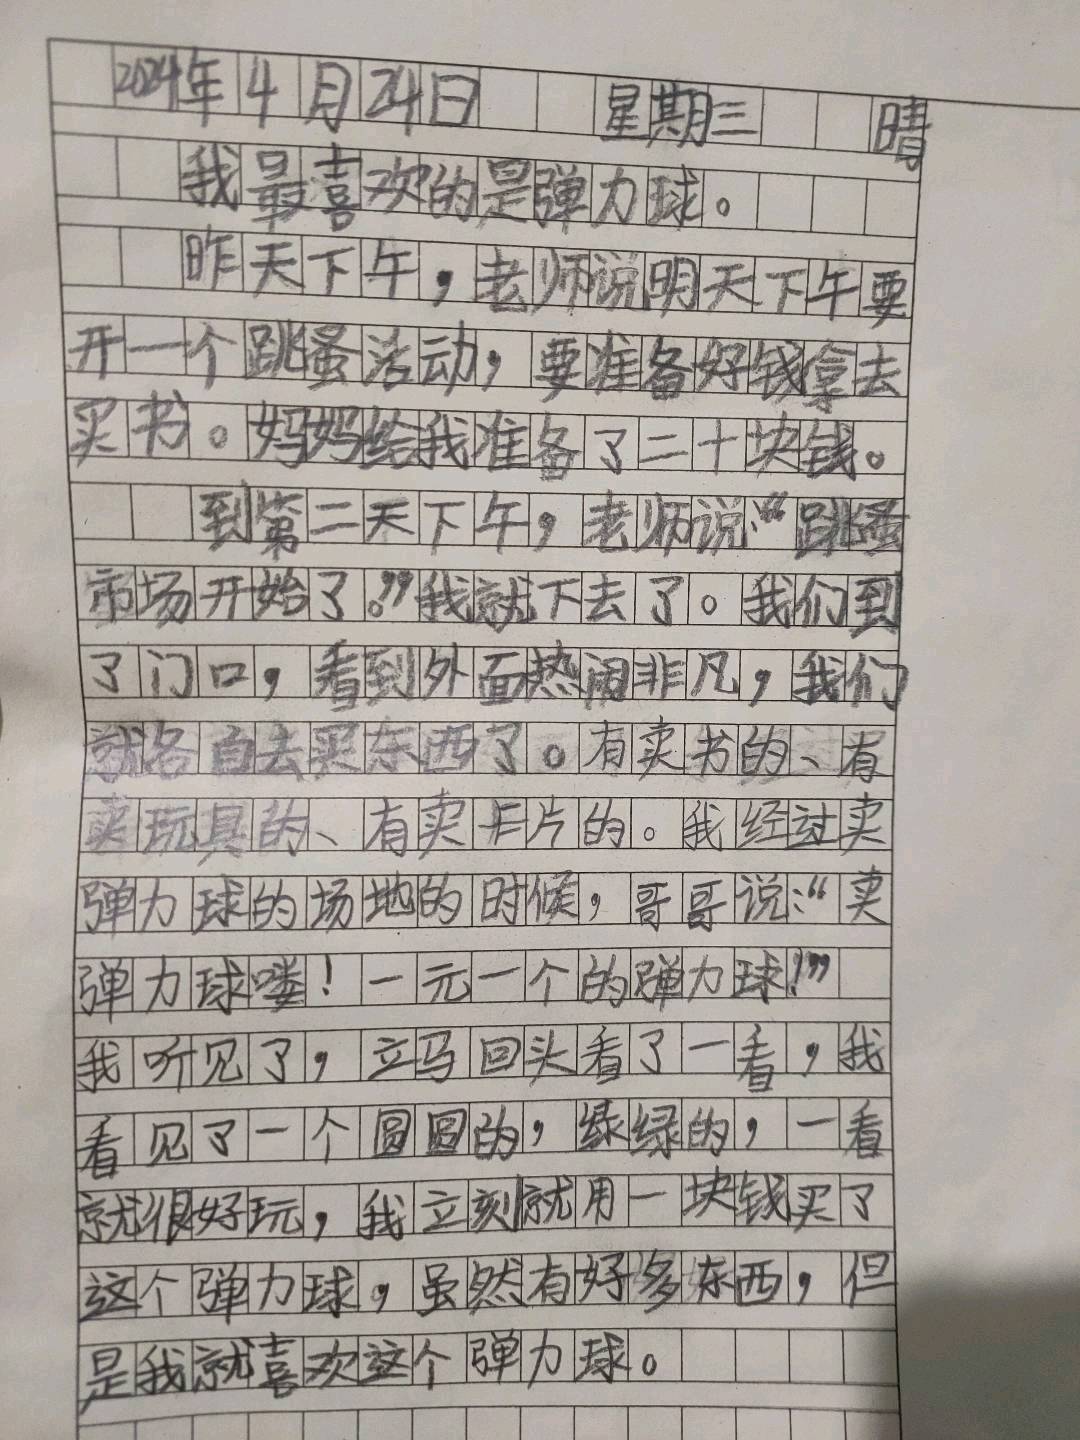 2024年4月24日 星期三 晴
我最喜欢的是弹力球。
昨天下午，老师说明天下午要
开一个跳蚤活动，要准备好钱拿去
买书。妈妈给我准备了二十块钱。
到第二天下午，老师说：“跳蚤
市场开始了。”我就下去了。我们到
了门口，看到外面热闹非凡，我们
就各自去买东西了。有卖书的、有
卖玩具的、有卖卡片的。我经过卖
弹力球的场地的时候，哥哥说：“卖
弹力球喽！一元一个的弹力球！”
我听见了，立马回头看了一看，我
看见了一个圆圆的，绿绿的，一看
就很好玩，我立刻就用一块钱买了
这个弹力球，虽然有好多东西，但
是我就喜欢这个弹力球。